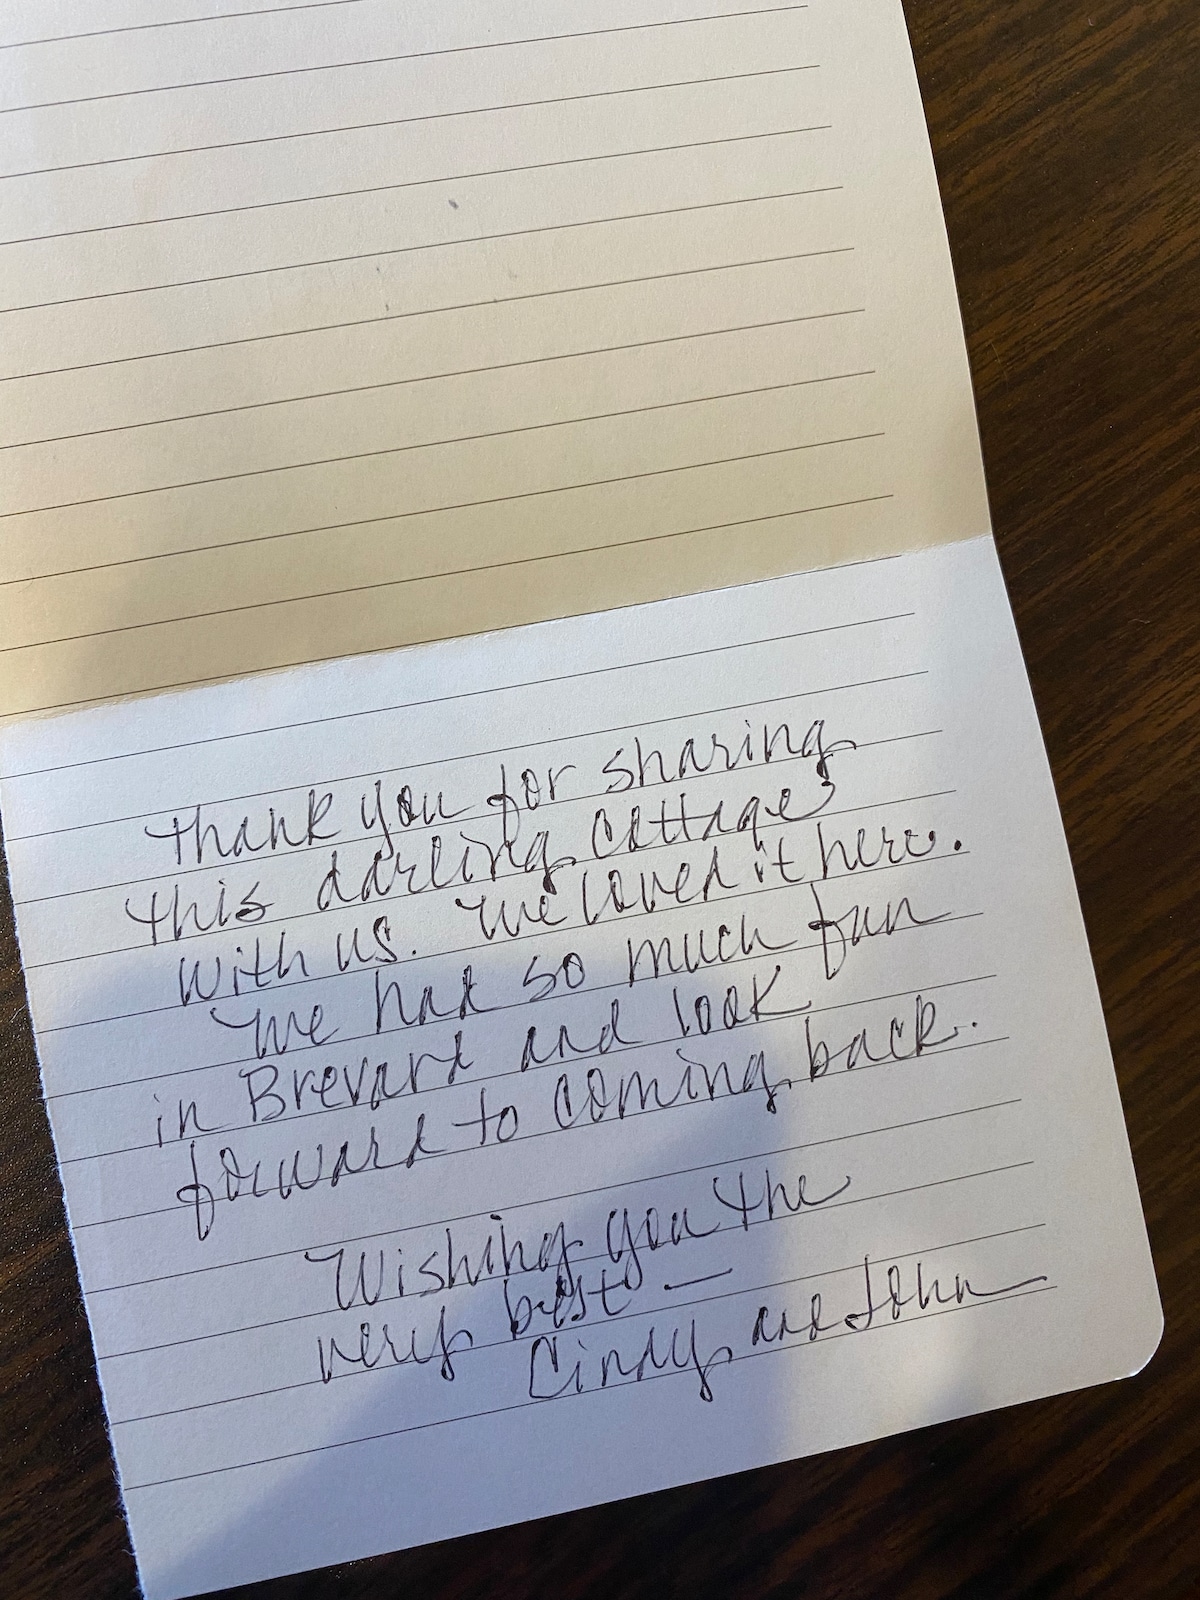 Thank you for sharing
this darling cottage
with us. We loved it here.
We had so much fun
in Brevard and look
forward to coming back.
Wishing you the
very best —
Cindy and John